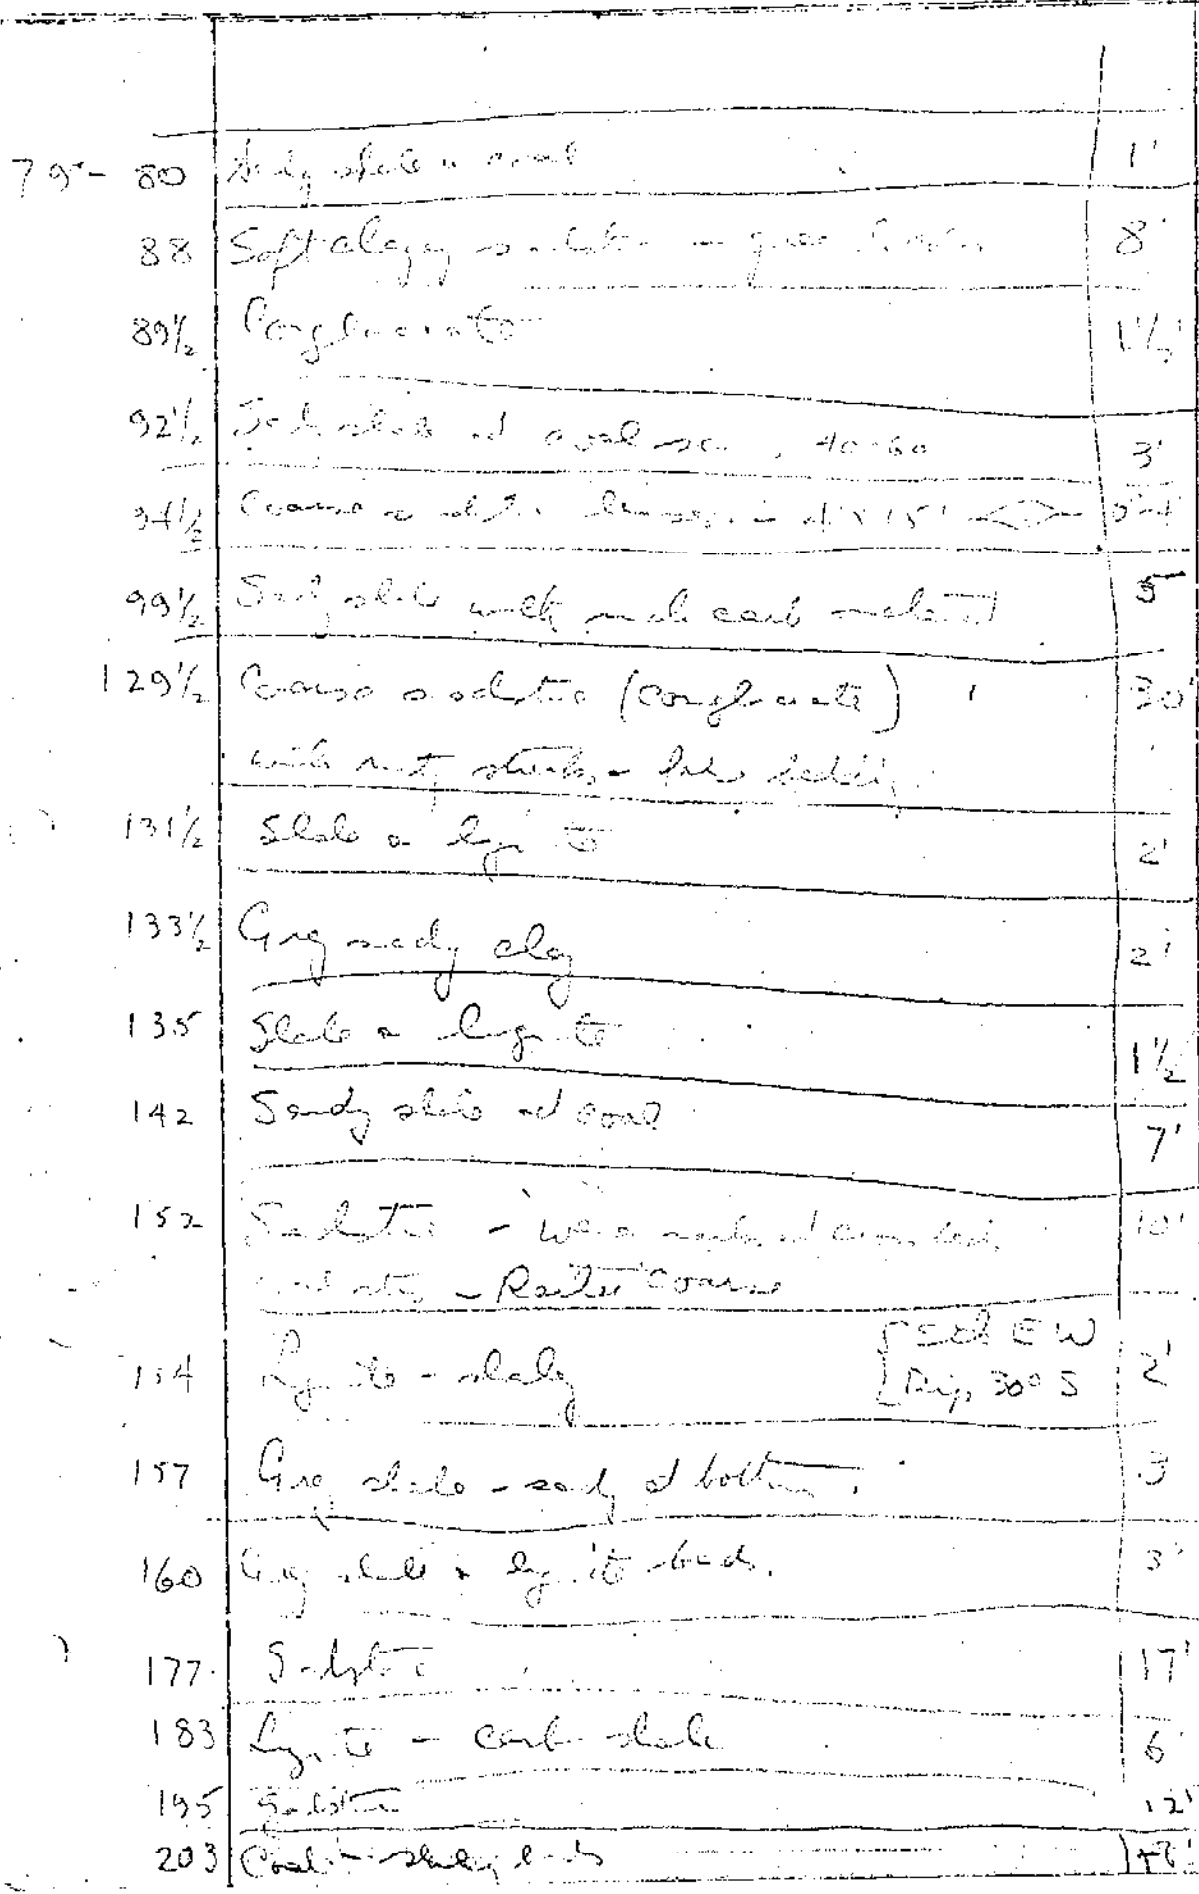 79 - 80 Sandy shale & coal 1'
88 Soft clayey sandstone - green 8'
89½ Conglomerate 1½'
92½ shale and coal , 40-60 3'
94½ Coarse sandstone lenses - 4' x 15' 0'-4
99½ Sandy shale with much carb material 5
129½ Coarse sandstone (Conglomerate) 30'
with rusty streaks - false bedding
131½ Shale & lignite 2'
133½ Grey sandy clay 2'
135 Shale & lignite 1½
142 Sandy shale and coal 7'
152 Sandstone - wave marks and cross beds 10'
- Rather coarse
154 Lignite - shaley { E W 2'
Dip 30° S
157 Grey shale - sandy at bottom. 3
160 Grey shale & lignite bands. 3'
177 Sandstone 17'
183 Lignite - carb shale 6'
195 Sandstone 12'
203 Coal - shaley bands